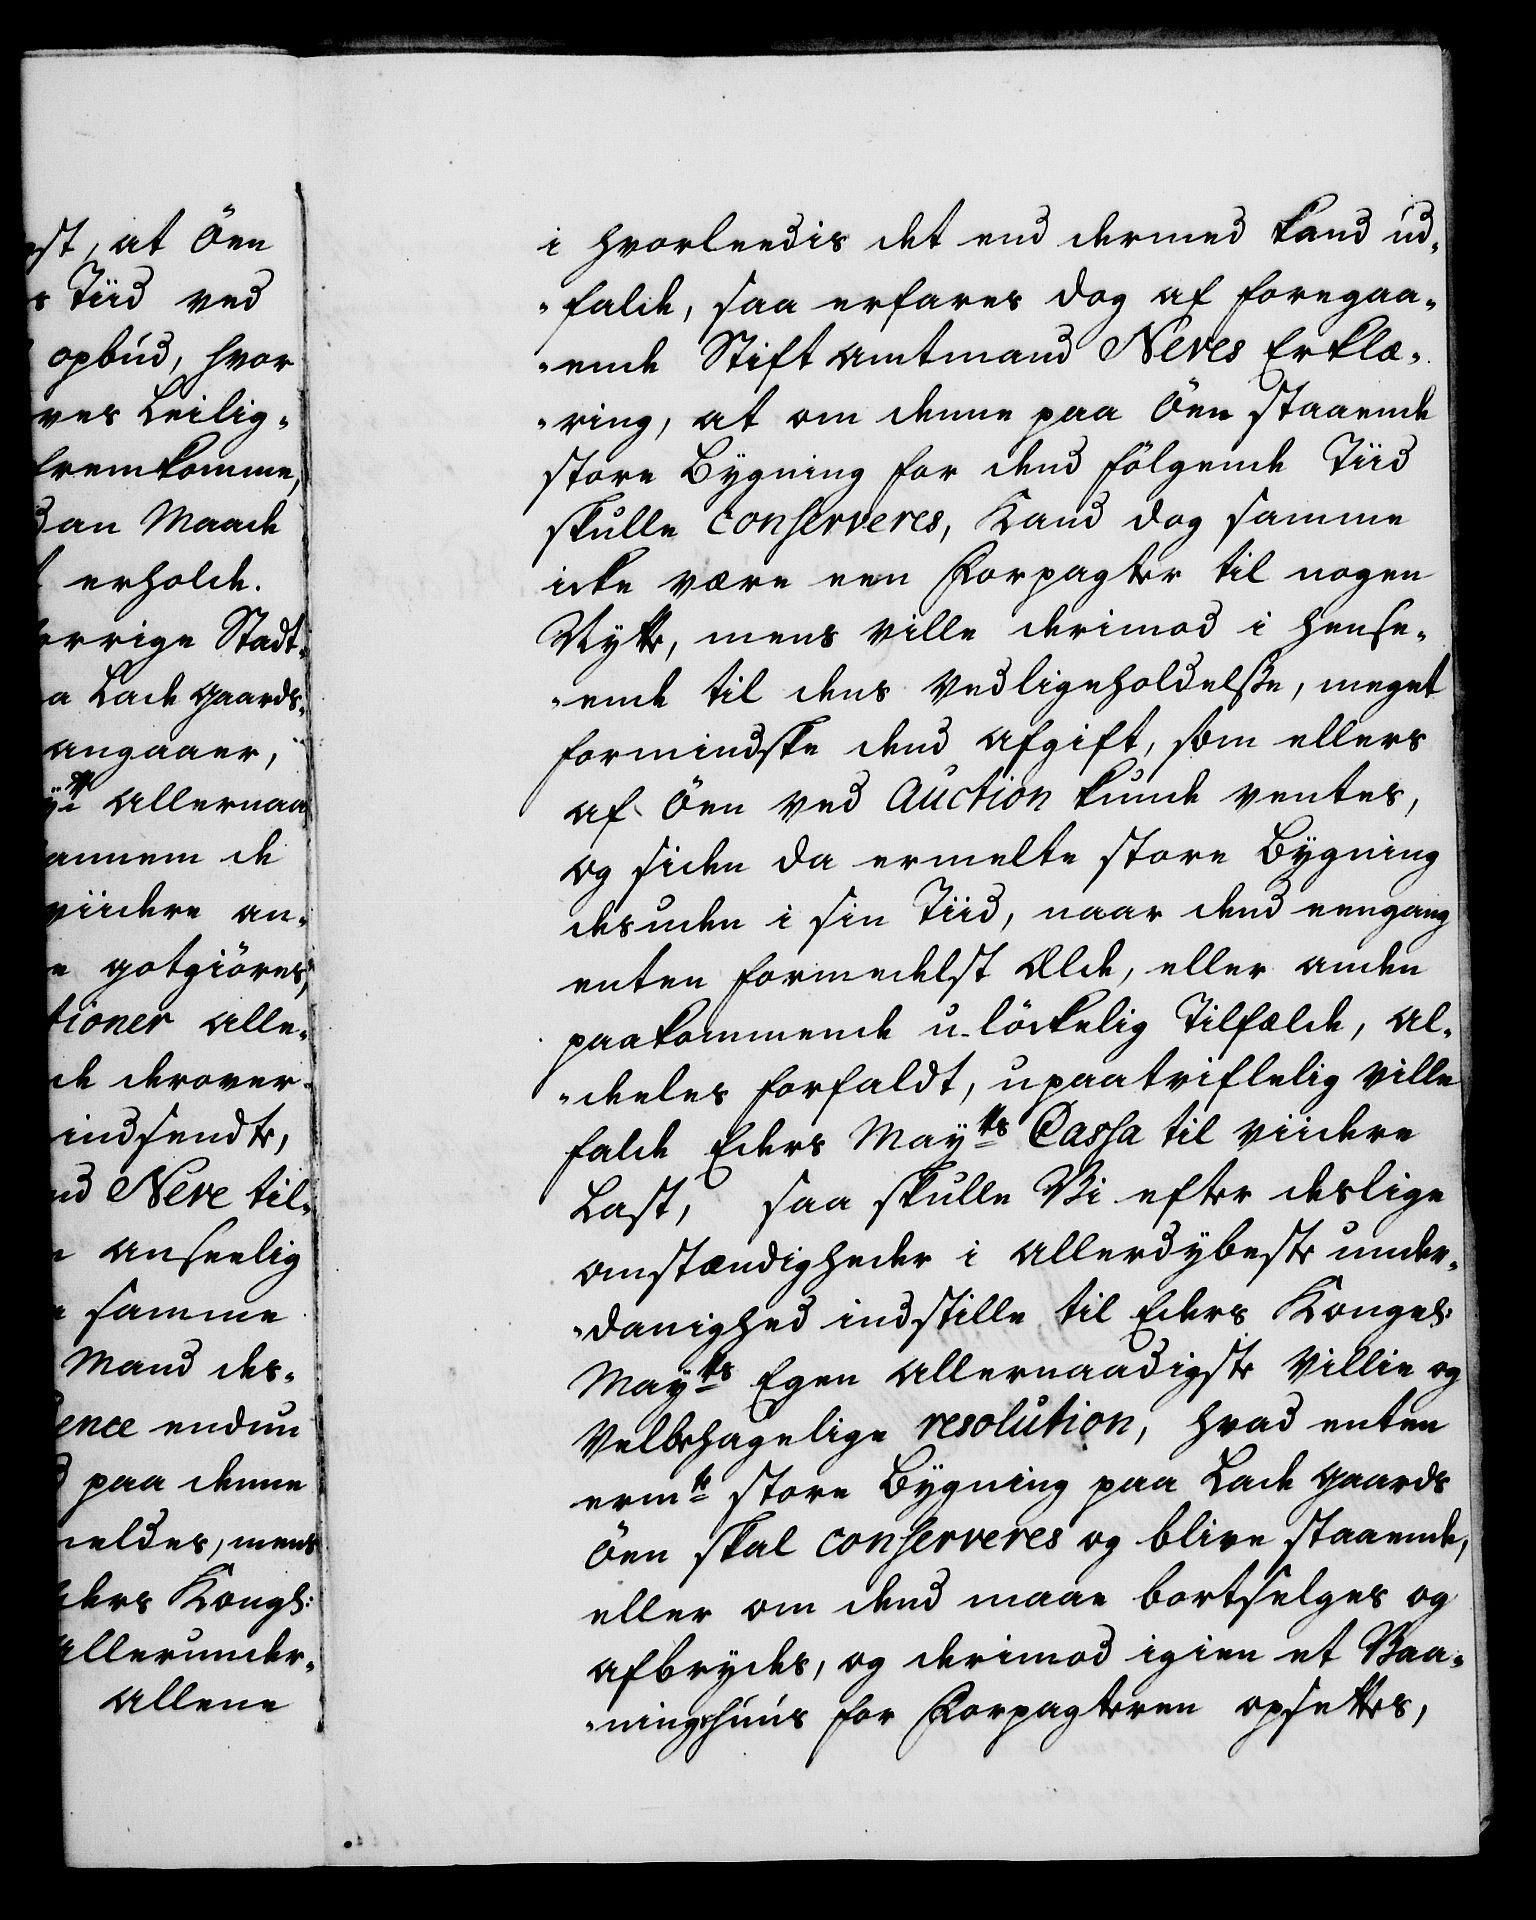 st, at Öen
s Tiid ved
opbúd, hvor
ves Leilig-
fremkomme,
dan Maade
erholde.
errige Stadt-
a Lade gaards-
angaaer,
ÿts allernaa
annem de
viidere an-
e gotgiöres,
tioner alle-
de derover-
indsendte,
nd Neve til-
anseelig
samme
Mand des-
ence endnu
d paa denne
meldes, mens
ders Kongl:
allerunder-
allene
i hvorleedis det end dermed kand ud-
-falde, saa erfares dog af foregaa-
-ende Stift amtmand Neves Erklæ-
-ring, at om denne paa Öen staaende
store Bÿgning for dend fölgende Tiid
skulle conserveres, Kand dog samme
icke være een Forpagter til nogen
Nÿtte, mens ville derimod i hense-
-ende til dens Vedligeholdelsse, meget
formindske dend afgift, som ellers
af Öen ved Auction kunde ventes,
og siden da ermelte store Bÿgning
desuden i sin Tiid, naar dend eengang
enten formedelst Ælde, eller anden
paakommende u-löckelig Tilfælde, al-
-deles forfaldt, upaatviflelig ville
falde Eders Maÿts Cassa til viidere
Last, saa skulle Vi efter deslige
omstændigheder i allerdÿbeste under-
-danighed indstille til Eders Kongel:
Maÿts Egen allernaadigste Villie og
Velbehagelige resolution, hvad enten
ermte store Bÿgning paa Lade gaards
Öen skal conserveres og blive staaende,
eller om dend maae bortselges og
afbrydes, og derimod igien et Vaa-
-ningshúús for Forpagteren opsettes,